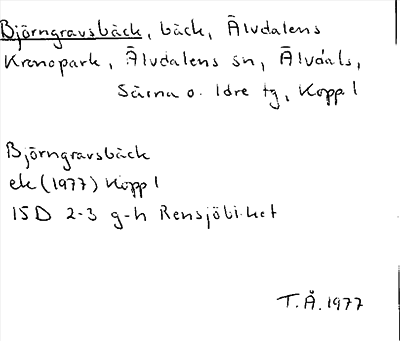 Björngravsbäck, bäck, Älvdalens
Kronopark, Älvdalens sn, Älvdals,
Särna o. Idre tg, Kopp l
Björngravsbäck
ek (1977) Kopp l
15D 2-3 g-h Rensjöbihet
T.Å. 1977